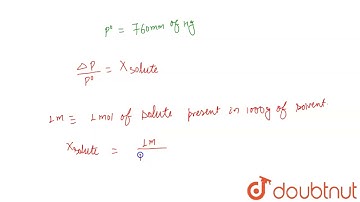 P° = 760mm of Hg
ΔP/P° = Xsolute
1M ≡ 1mol of solute present in 1000g of solvent
Xsolute = 1M/
doubtnut